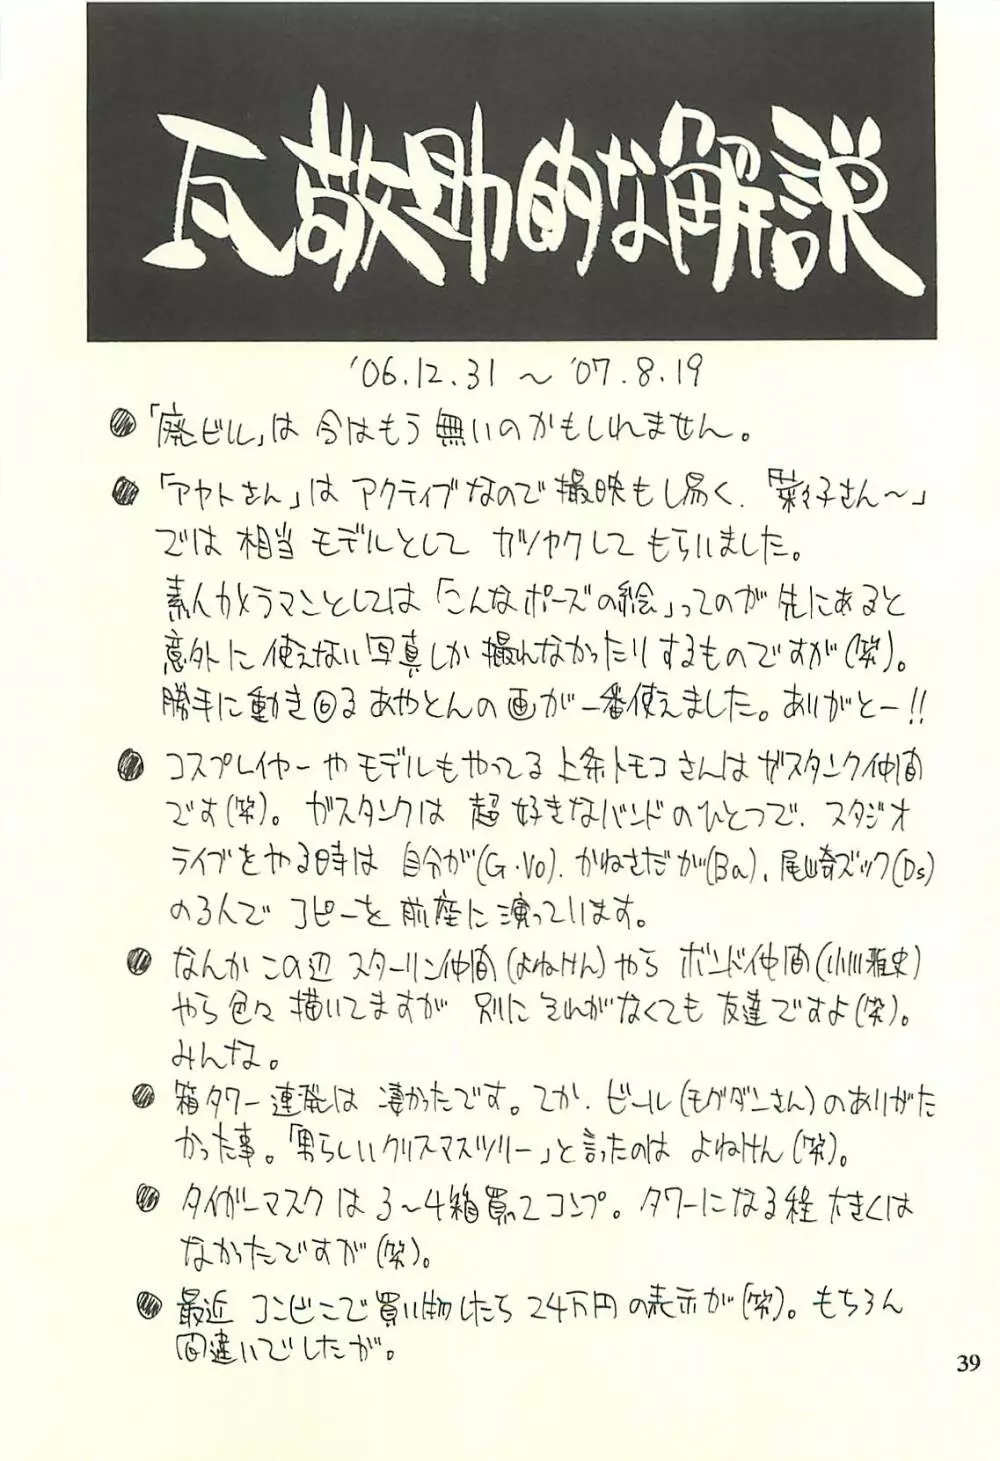 瓦敬助的な解説
'06.12.31 〜 '07.8.19
●「廃ビル」は 今はもう 無いのかもしれません。
●「アヤトさん」は アクティブなので 撮映もし易く、「菜々子さん〜」
では 相当 モデルとして カツヤクして もらいました。
素人カメラマンとしては「こんなポーズの絵」ってのが 先にあると
意外に 使えない 写真しか 撮れなかったりするものですが(笑)。
勝手に動き回る あやとんの 画が 一番使えました。ありがとー!!
●コスプレイヤーや モデルもやってる 上条トモコさんは ガスタンク仲間
です(笑)。ガスタンクは 超 好きなバンドのひとつで、スタジオ
ライブを やる時は 自分が(G・Vo)、かねさだが(Ba)、尾崎ズック(Ds)
のるんで コピーを 前座に 演っています。
●なんか この辺 スターリン仲間(よねけん)やら ボンド仲間(小川雅史)
やら 色々 描いてますが 別に それがなくても 友達ですよ(笑)。
みんな。
●箱タワー連発は 凄かったです。てか、ビール(モグダンさん)のありがた
かった事。「男らしいクリスマスツリー」と言ったのは よねけん(笑)。
●タイガーマスクは 3〜4箱買って コンプ。タワーになる程 大きくは
なかったですが(笑)。
●最近 コンビニで 買い物したら 24万円の表示が(笑)。もちろん
間違いでしたが。
39